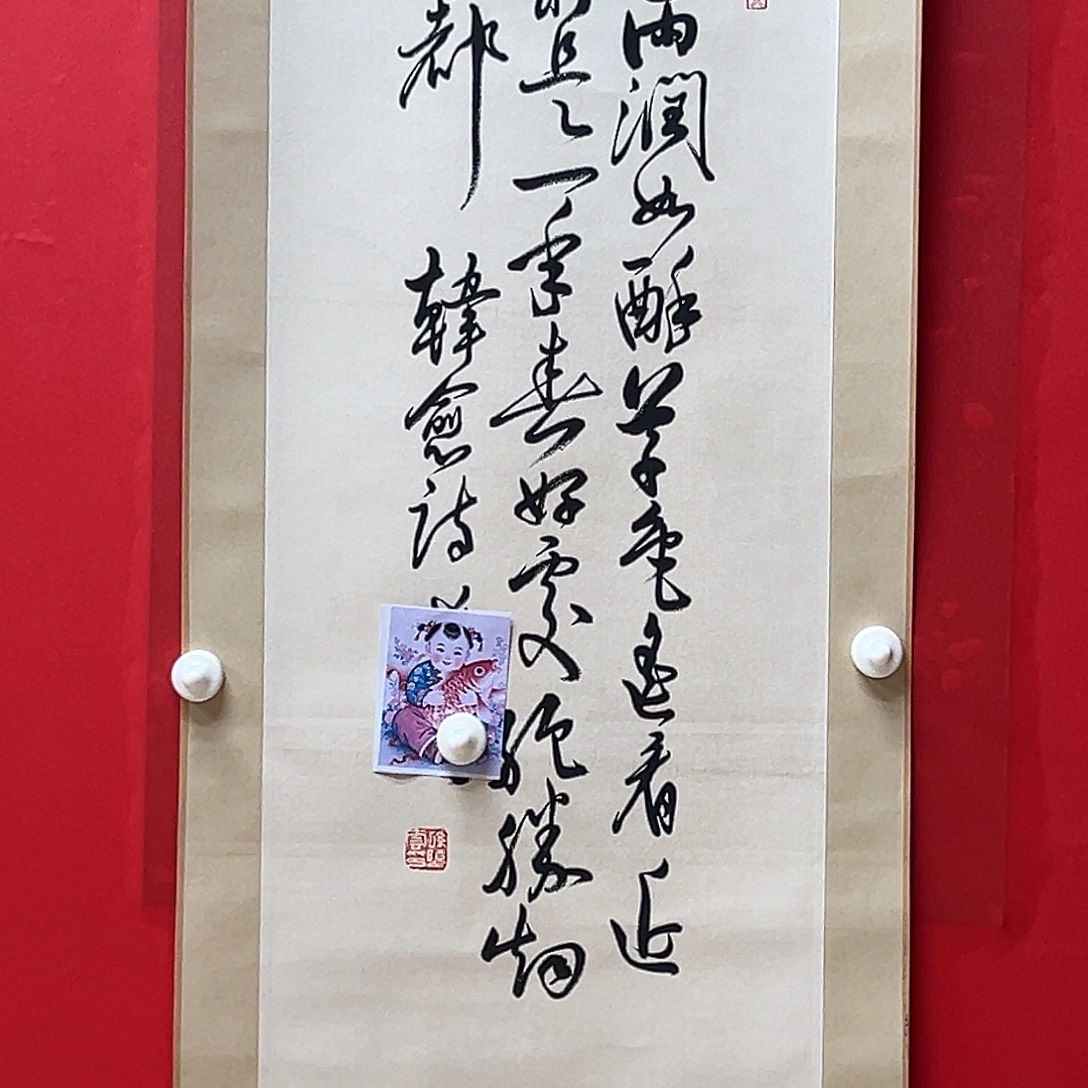 雨潤如酥草色遙看近
是一年春好處絕勝烟
都 韓愈詩